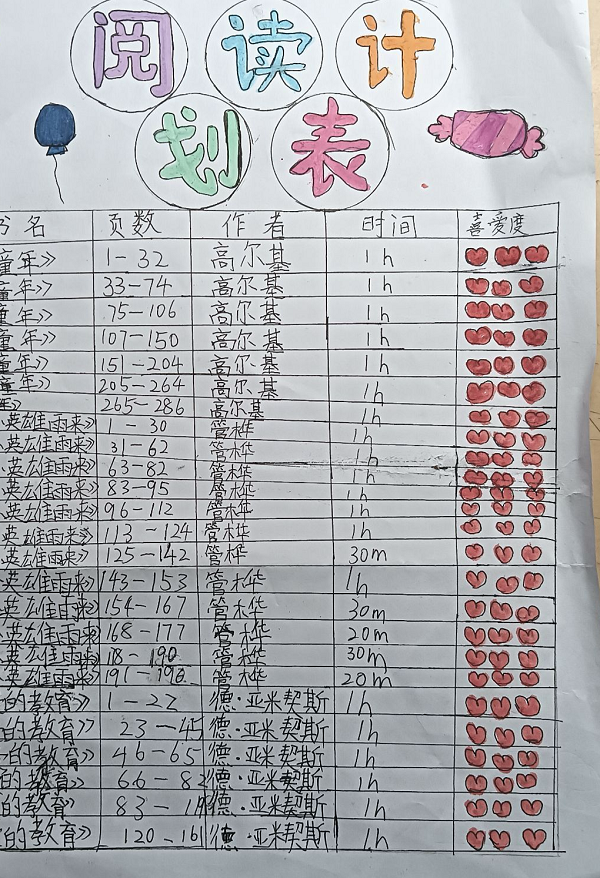 阅读计
划表
书名 页数 作者 时间 喜爱度
童年》 1-32 高尔基 1h
童年》 33-74 高尔基 1h
童年》 75-106 高尔基 1h
童年》 107-150 高尔基 1h
童年》 151-204 高尔基 1h
童年》 205-264 高尔基 1h
年》 265-286 高尔基 1h
小英雄雨来》 1-30 管桦 1h
英雄雨来》 31-62 管桦 1h
英雄雨来》 63-82 管桦 1h
英雄雨来》 83-95 管桦 1h
英雄雨来》 96-112 管桦 1h
英雄雨来》 113-124 管桦 1h
英雄雨来》 125-142 管桦 30m
英雄雨来》 143-153 管桦 1h
英雄雨来》 154-167 管桦 30m
英雄雨来 168-177 管桦 20m
英雄雨来》 管桦 30m
英雄雨来》 191-196 管桦 20m
的教育》 1-22 德·亚米契斯 1h
的教育》 23-45 德·亚米契斯 1h
的教育》 46-65 德·亚米契斯 1h
的教育》 66-82 德·亚米契斯 1h
的教育》 83-1 德·亚米契斯 1h
的教育》 120-161 德·亚米契斯 1h